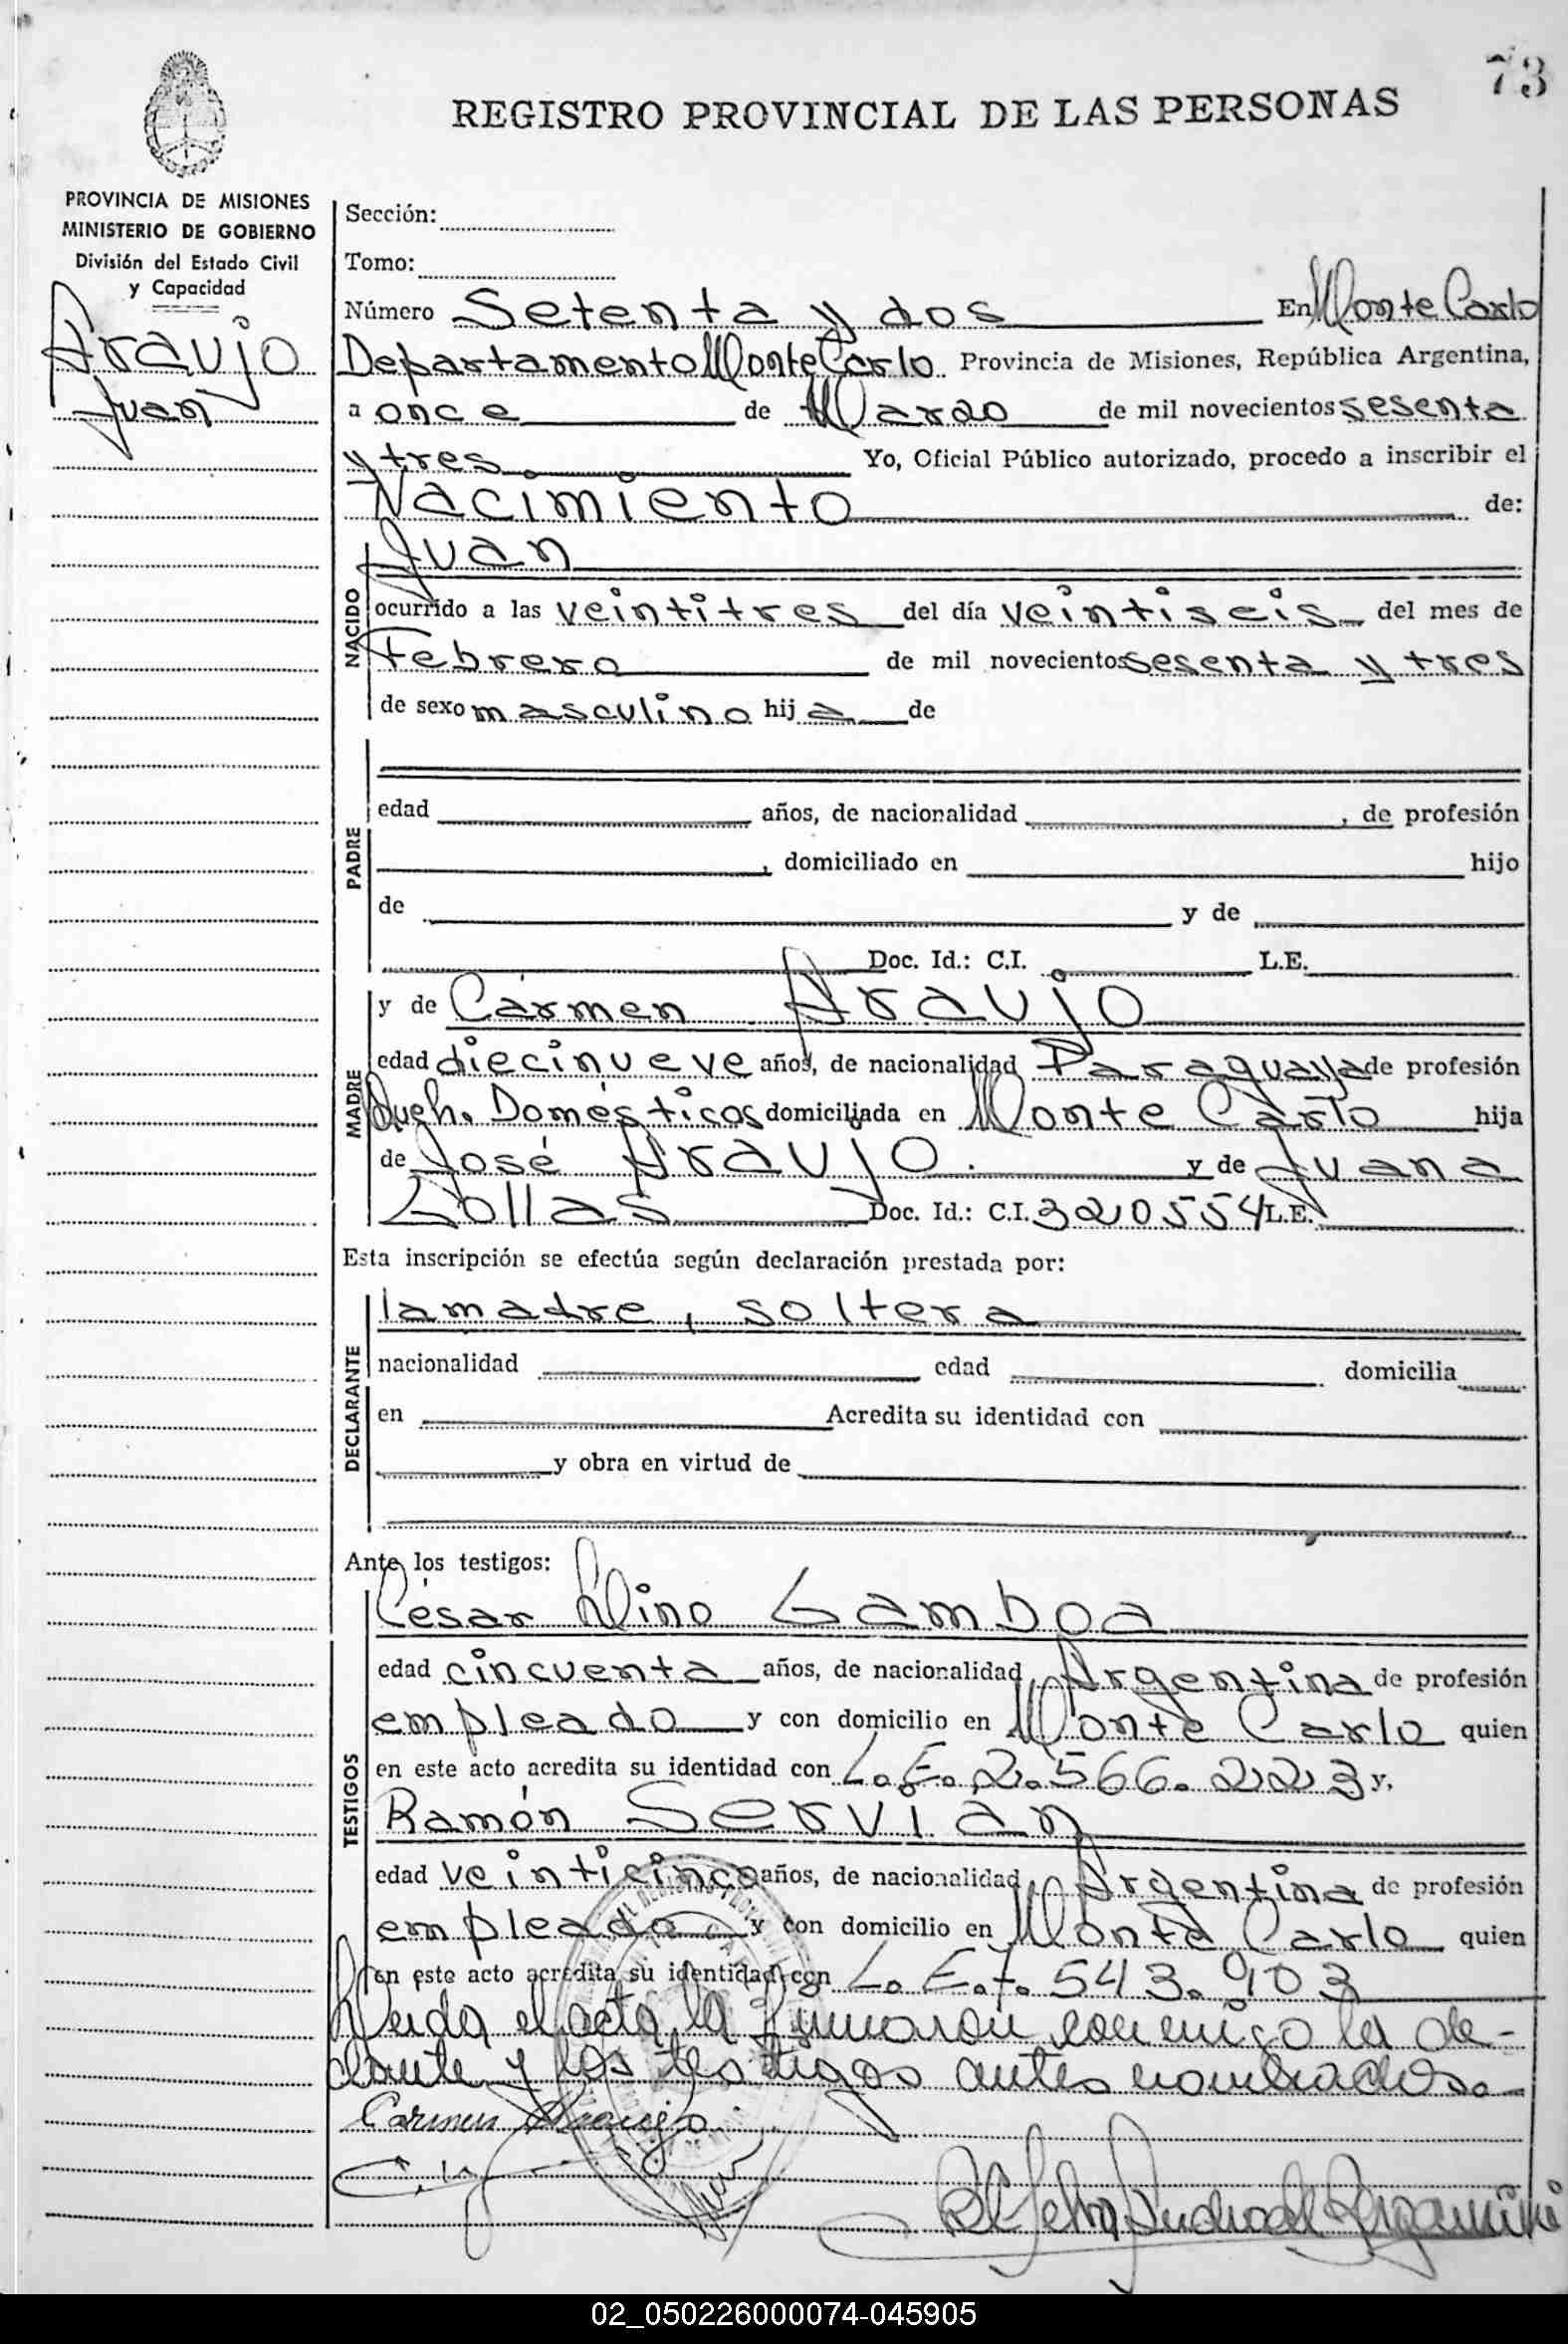 73
REGISTRO PROVINCIAL DE LAS PERSONAS
PROVINCIA DE MISIONES
MINISTERIO DE GOBIERNO
División del Estado Civil
y Capacidad
Araujo
Juan
Sección:
Tomo:
Número Setenta y dos En Monte Carlo
Departamento Monte Carlo Provincia de Misiones, República Argentina,
a once de Marzo de mil novecientos sesenta
y tres Yo, Oficial Público autorizado, procedo a inscribir el
Nacimiento de:
NACIDO
Juan
ocurrido a las veintitres del día veintiseis del mes de
Febrero de mil novecientos sesenta y tres
de sexo masculino hij a de
PADRE
edad años, de nacionalidad , de profesión
, domiciliado en hijo
de y de
Doc. Id.: C.I. L.E.
MADRE
y de Carmen Araujo
edad diecinueve años, de nacionalidad Paraguaya de profesión
Queh. Domésticos domiciliada en Monte Carlo hija
de José Araujo. y de Juana
Gollas Doc. Id.: C.I. 320554 L.E.
Esta inscripción se efectúa según declaración prestada por:
DECLARANTE
la madre, soltera
nacionalidad edad domicilia
en Acredita su identidad con
y obra en virtud de
Ante los testigos:
TESTIGOS
César Lino Gamboa
edad cincuenta años, de nacionalidad Argentina de profesión
empleado y con domicilio en Monte Carlo quien
en este acto acredita su identidad con L.E. 2.566.223 y,
Ramón Servián
edad veinticinco años, de nacionalidad Argentina de profesión
empleado y con domicilio en Monte Carlo quien
en este acto acredita su identidad con L.E. 7.543.903
Leida el acta, la firmaron conmigo la de-
clante y los testigos antes nombrados.
Carmen Araujo
02_050226000074-045905